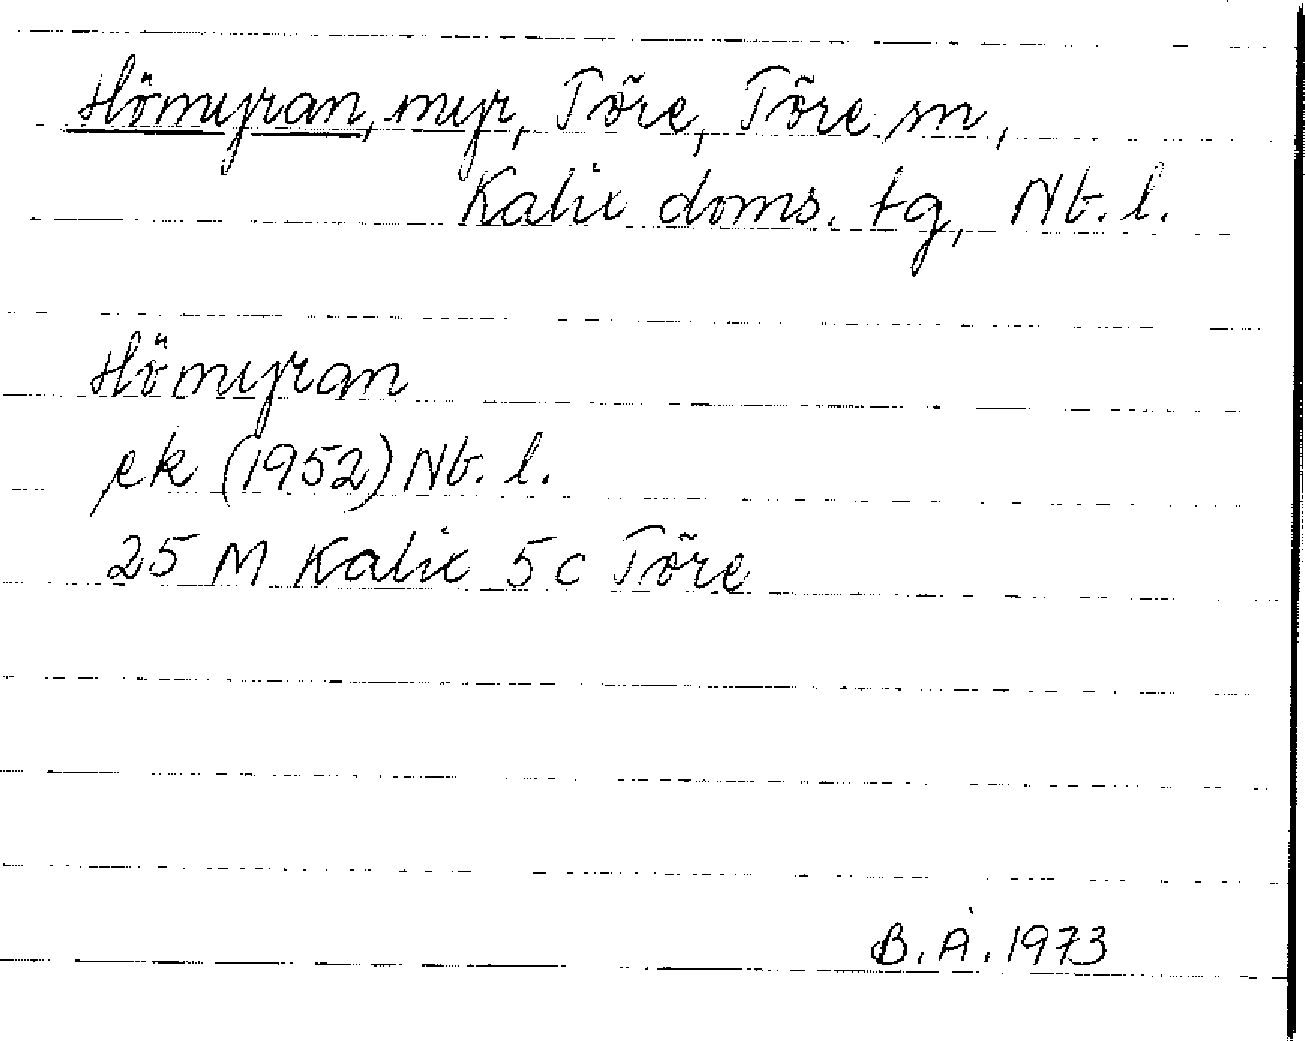 Hömyran, myr, Töre, Töre sn,
Kalix doms. tg, Nb. l.
Hömyran
ek (1952) Nb. l.
25 M Kalix 5c Töre
B. Å. 1973